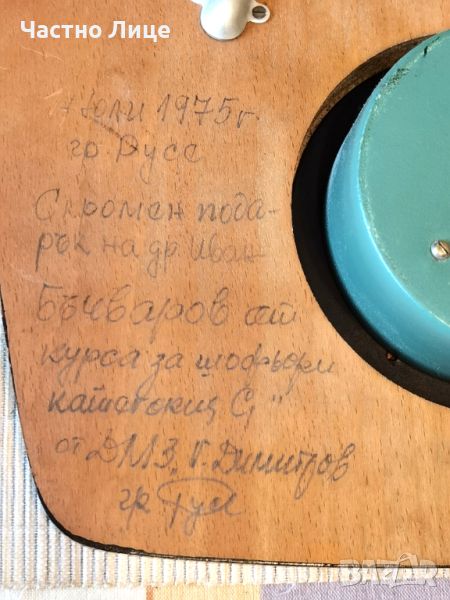 Частно Лице
Юли 1975 г.
гр. Русе
Скромен пода-
рък на др. Иван
Бъчваров от
курса за шофьори
категория С"
от ДМЗ „Г. Димитров
гр Русе
BAZAR